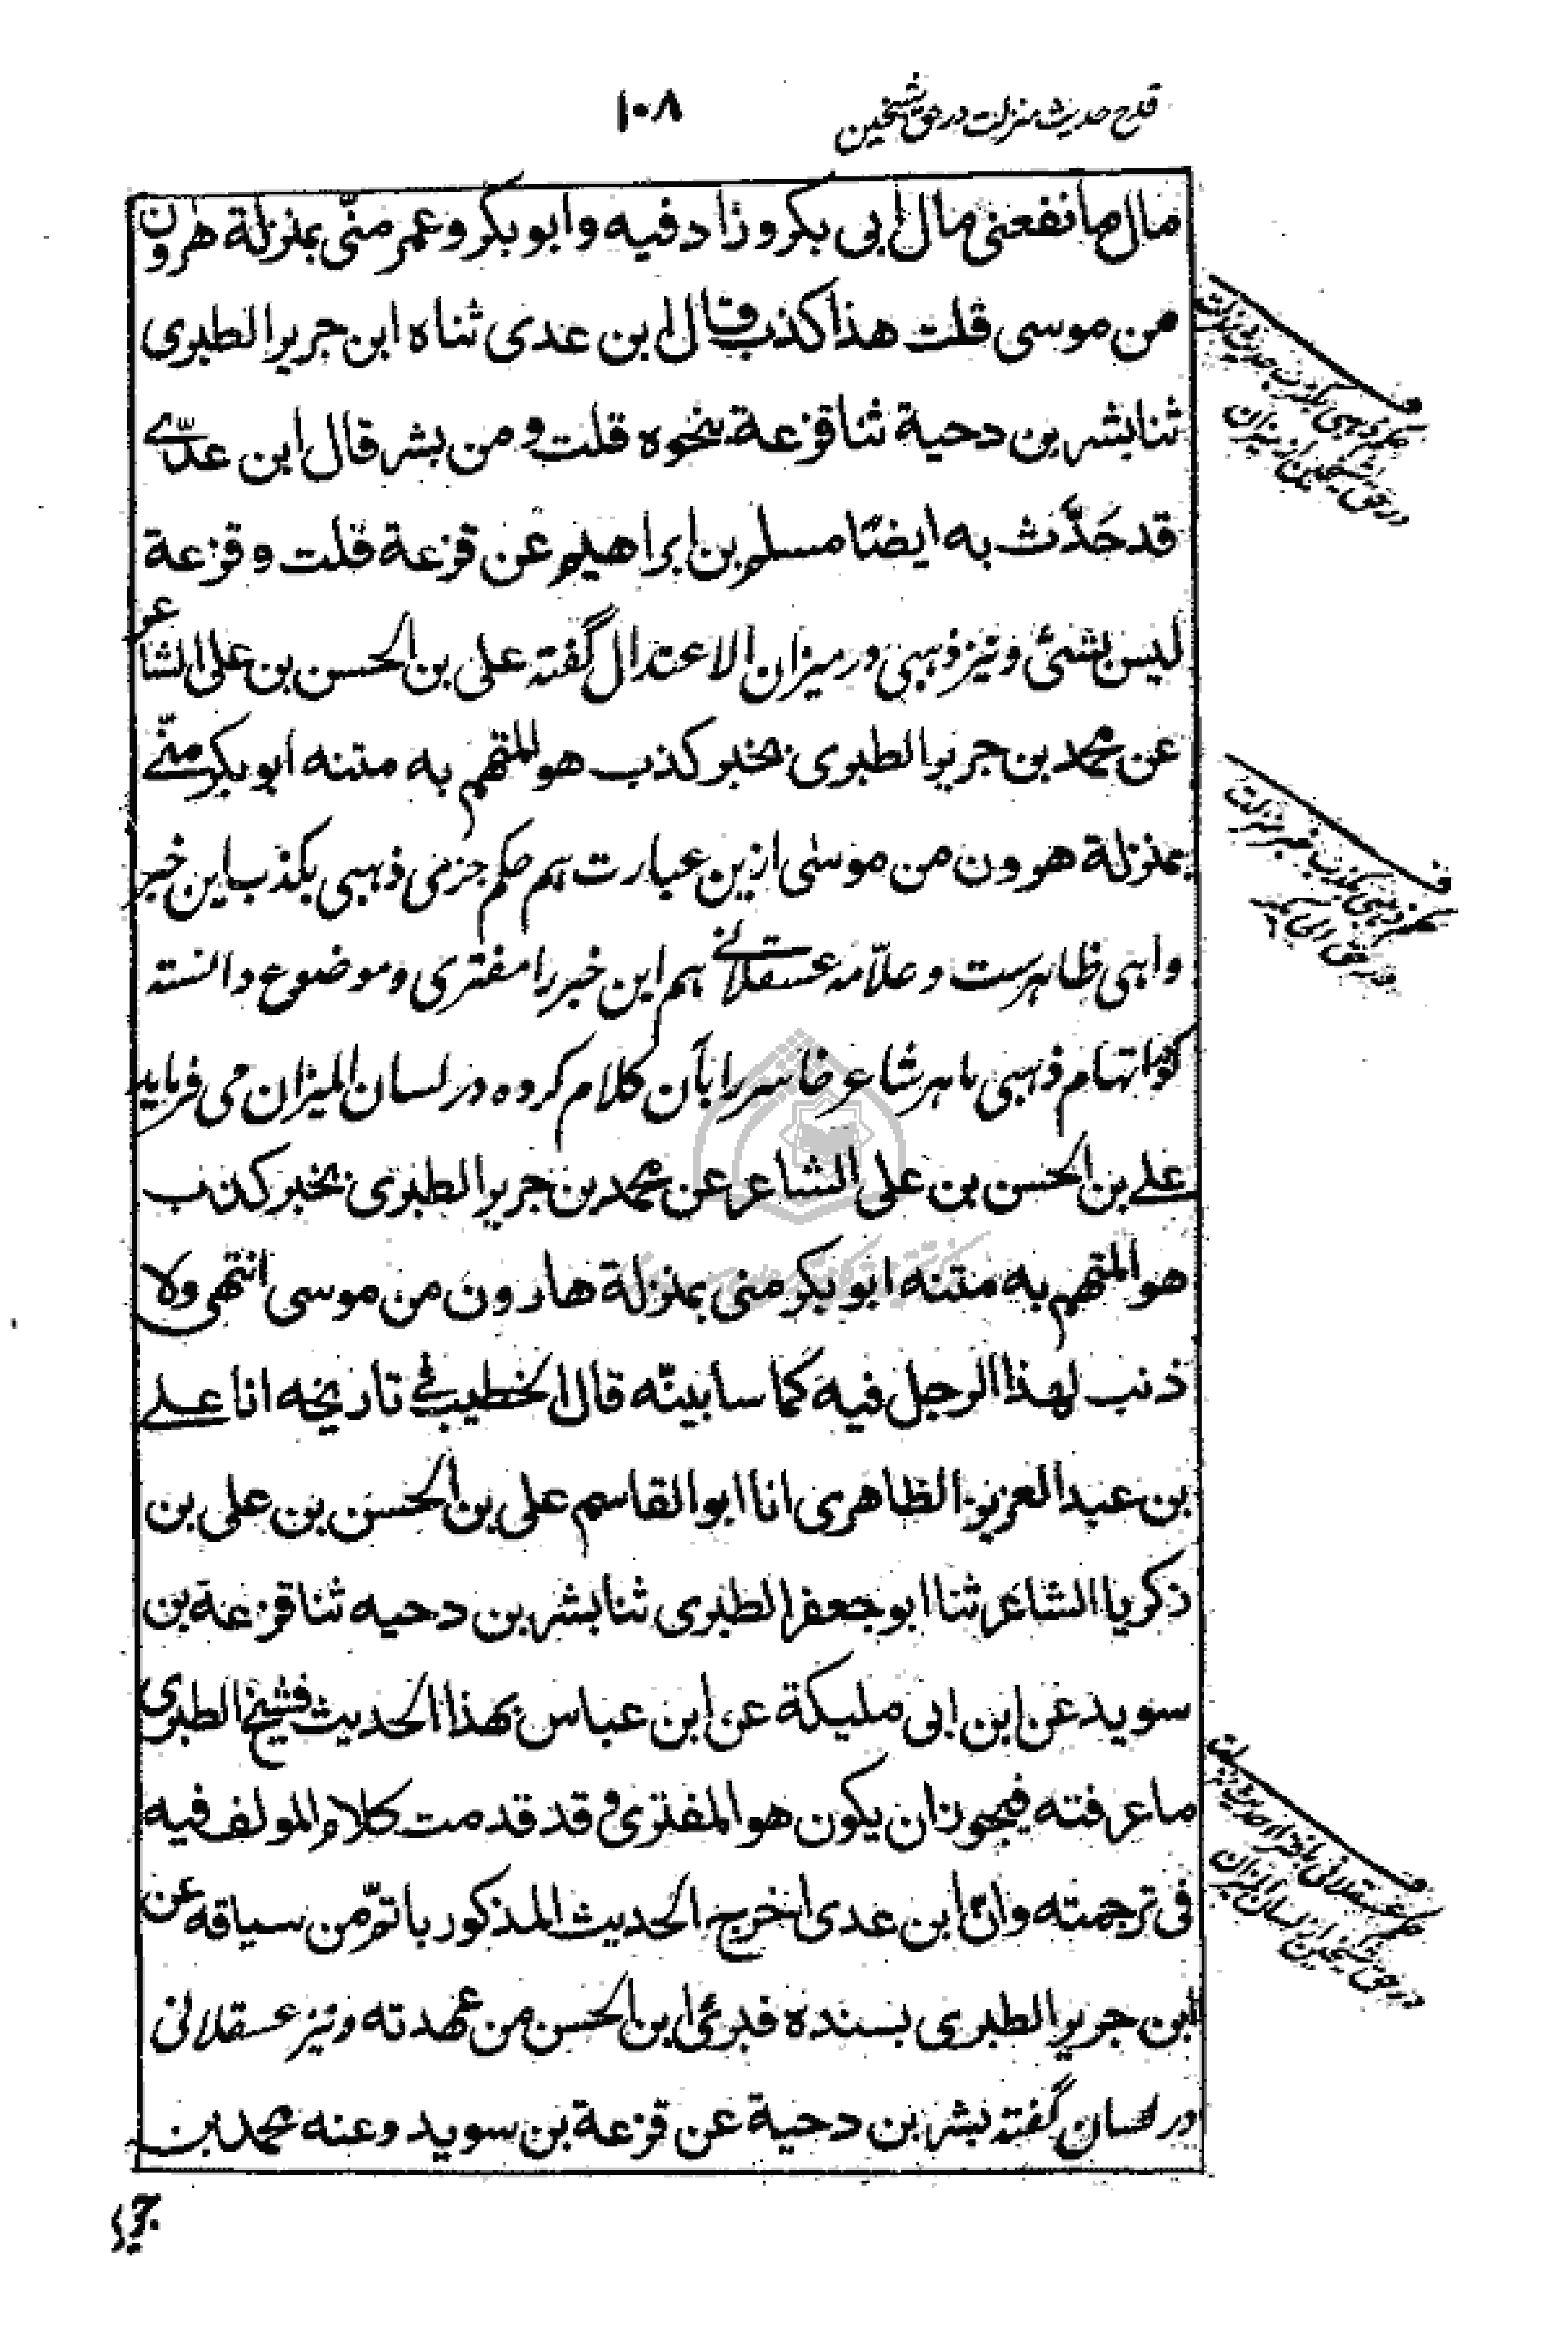 قدح حدیث منزلت در حق شیخین
۱۰۸
مال ما نفعنی مال ابی بکر و زاد فیه و ابو بکر و عمر منّی بمنزلة هرون
من موسی قلت هذا کذب قال ابن عدی ثناه ابن جریر الطبری
ثنا بشر بن دحیة ثنا قزعة بنحوه قلت و من بشر قال ابن عدّے
قد حَدَّث به ایضًا مسلم بن ابراهیم عن قزعة قلت و قزعة
لیس بشئ و نیز ذهبی در میزان الاعتدال گفته علی بن الحسن بن علی الشاعر
عن محمد بن جریر الطبری بخبر کذب هو المتهم به متنه ابو بکر منّے
بمنزلة هرون من موسٰی ازین عبارت هم حکم جزمی ذهبی بکذب این خبر
واهی ظاهرست و علّامه عسقلانے هم این خبر را مفتری و موضوع دانسته
گو اتهام ذهبی ماهر شاعر خاسر را بآن کلام کرده در لسان المیزان می فرماید
علے بن الحسن بن علی الشاعر عن محمد بن جریر الطبری بخبر کذب
هو المتهم به متنه ابو بکر منی بمنزلة هارون من موسی انتهی ولا
ذنب لهذا الرجل فیه کما سابینّه قال الخطیب فے تاریخه انا علے
بن عبد العزیز الظاهری انا ابو القاسم علی بن الحسن بن علی بن
زکریا الشاعر ثنا ابو جعفر الطبری ثنا بشر بن دحیه ثنا قزعة بن
سوید عن ابن ابی ملیکة عن ابن عباس بهذا الحدیث فشیخ الطبری
ما عرفته فیجوز ان یکون هو المفتری و قد قدمت کلام المولف فیه
فی ترجمته وانّ ابن عدی اخرج الحدیث المذکور باتمّ من سیاقه عن
ابن جریر الطبری بسنده فبرئ ابن الحسن من عهدته و نیز عسقلانی
در لسان گفته بشر بن دحیة عن قزعة بن سوید و عنه محمد بن
جریر
ف
حکم ذهبی بکذب حدیث منزلت
در حق شیخین از میزان
ف
حکم ذهبی بکذب خبر منزلت
در حق ابی بکر
ف
حکم عسقلانی بافتراء حدیث منزلت
در حق شیخین از لسان المیزان